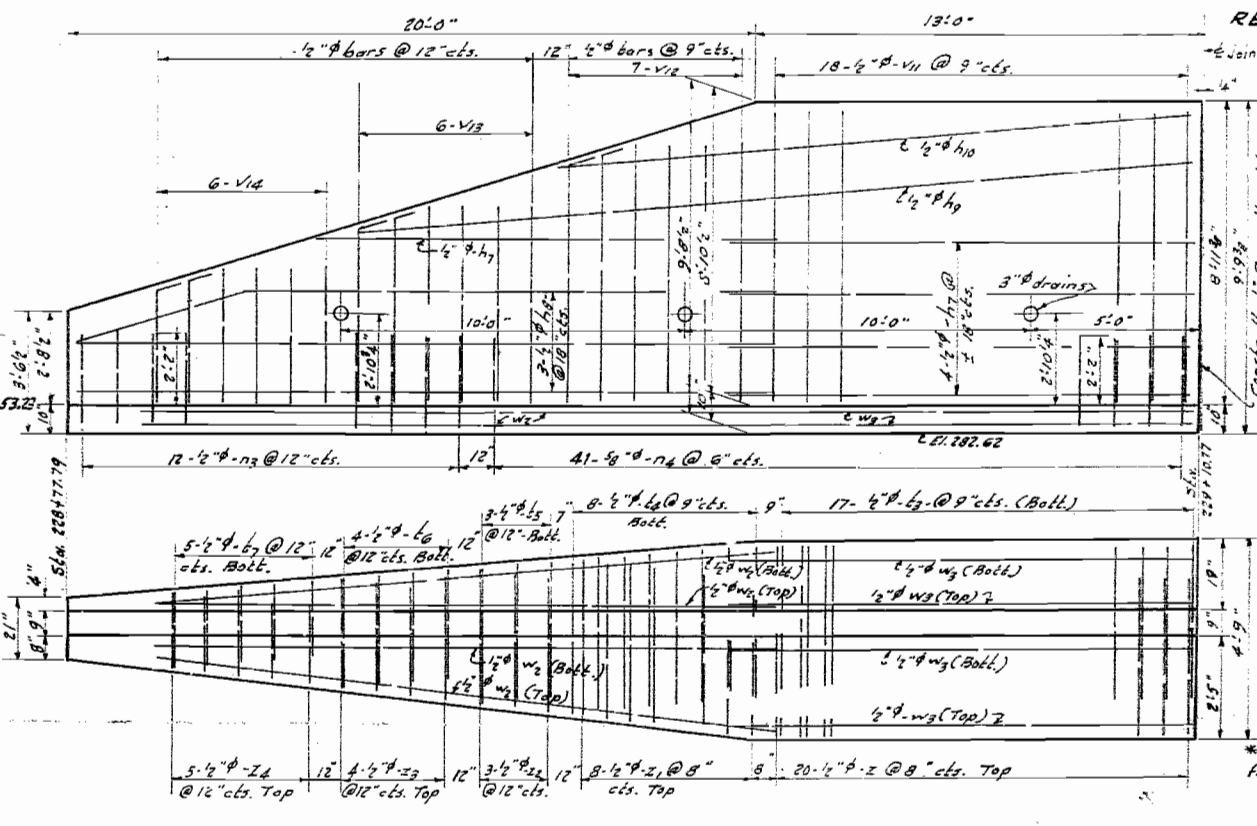 20'-0"
13'-0"
½"ϕ bars @ 12" cts.
12"
½"ϕ bars @ 9" cts.
7-V12
18-½"ϕ-V11 @ 9" cts.
¼"
6-V13
6-V14
½"ϕ h10
½"ϕ h9
½"ϕ-h7
9'-8½"
5'-10½"
3"ϕ drains
10'-0"
10'-0"
5'-0"
3-½"ϕ h8
@ 18" cts.
4-½"ϕ-h7 @
± 18" cts.
2'-2"
2'-10¾"
2'-10¾"
2'-2"
8'-11⅜"
9'-9⅜"
3'-6½"
2'-8½"
10"
10"
10"
53.23
w2
w3
El. 282.62
12-½"ϕ-n3 @ 12" cts.
12"
41-⅝"ϕ-n4 @ 6" cts.
Sta. 228+77.79
Sta.
229+10.77
5-½"ϕ-t7 @ 12"
cts. Bott.
12"
4-½"ϕ-t6
@ 12" cts. Bott.
12"
3-½"ϕ-t5
@ 12"-Bott.
7"
8-½"ϕ-t4 @ 9" cts.
Bott.
9"
17-½"ϕ-t3-@ 9" cts. (Bott.)
½"ϕ w2 (Bott.)
½"ϕ w2 (Top)
½"ϕ w3 (Bott.)
½"ϕ w3 (Top)
½"ϕ w2 (Bott.)
½"ϕ w2 (Top)
½"ϕ w3 (Bott.)
½"ϕ-w3 (Top)
21"
4"
9"
8"
19"
9"
2'-5"
4'-9"
5-½"ϕ-z4
@ 12" cts. Top
12"
4-½"ϕ-z3
@ 12" cts. Top
12"
3-½"ϕ-z2
@ 12" cts.
12"
8-½"ϕ-z1 @ 8"
cts. Top
8"
20-½"ϕ-z @ 8" cts. Top